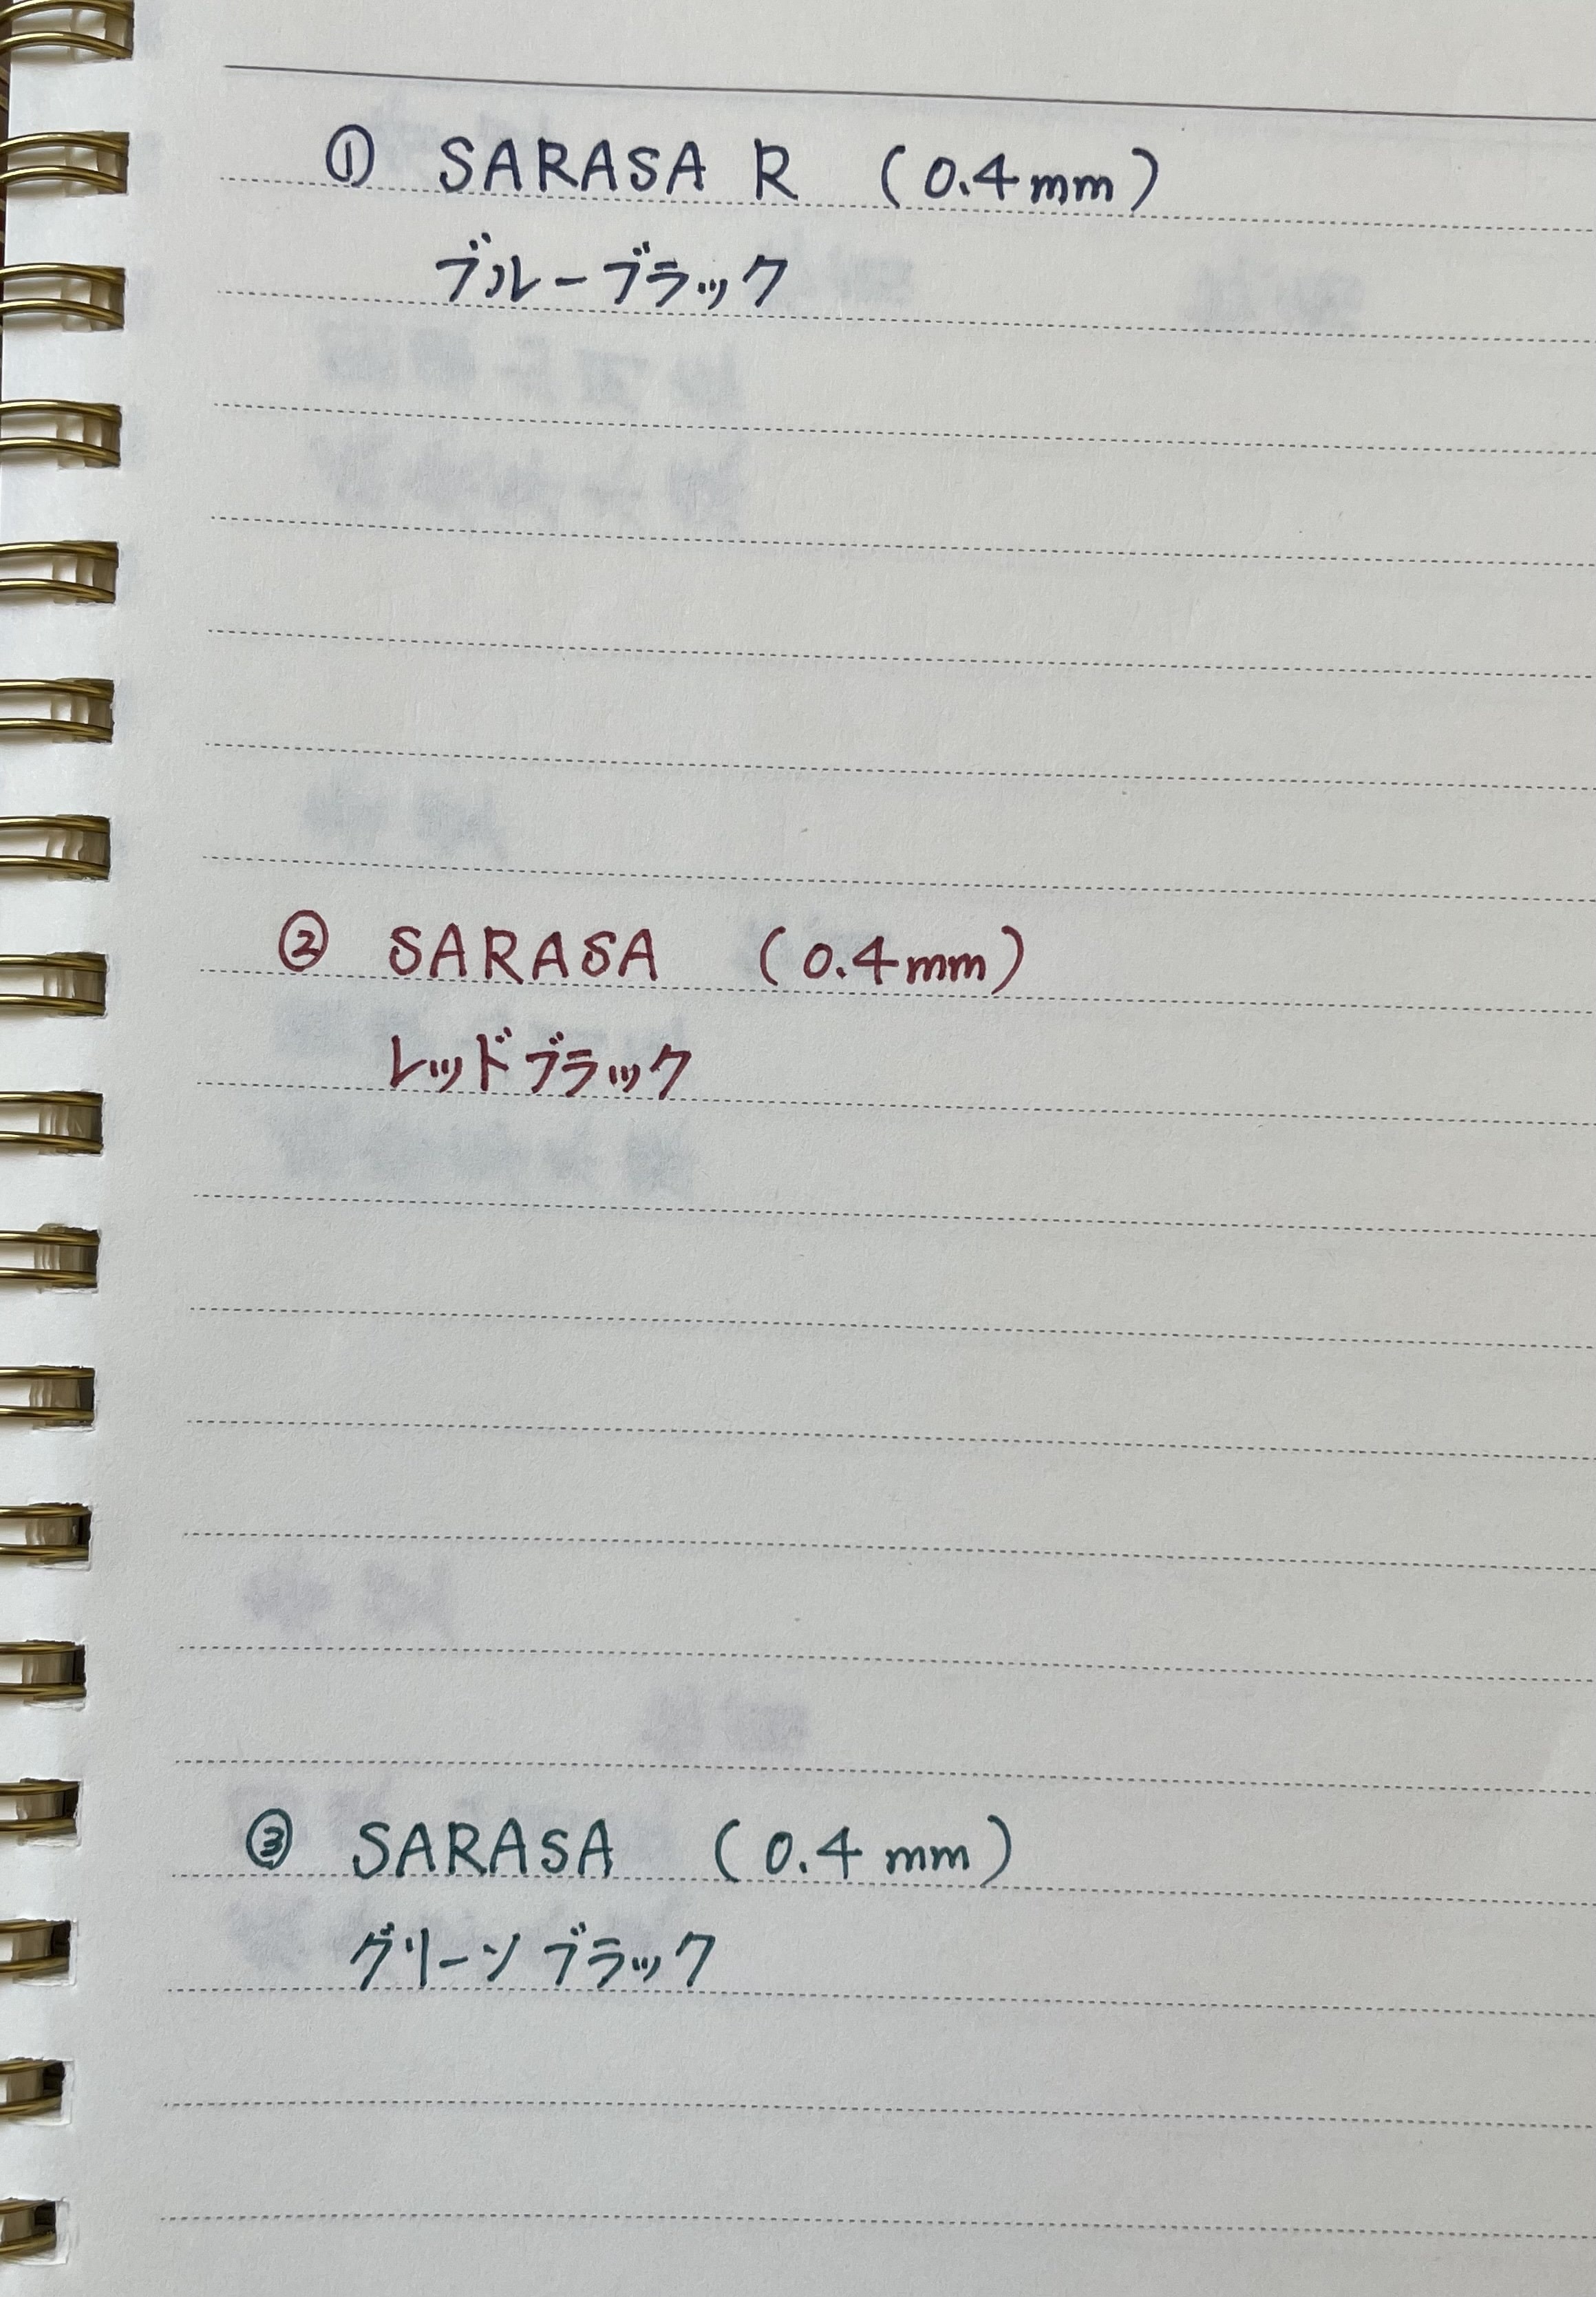 ① SARASA R (0.4mm)
ブルーブラック
② SARASA (0.4mm)
レッドブラック
③ SARASA (0.4mm)
グリーンブラック